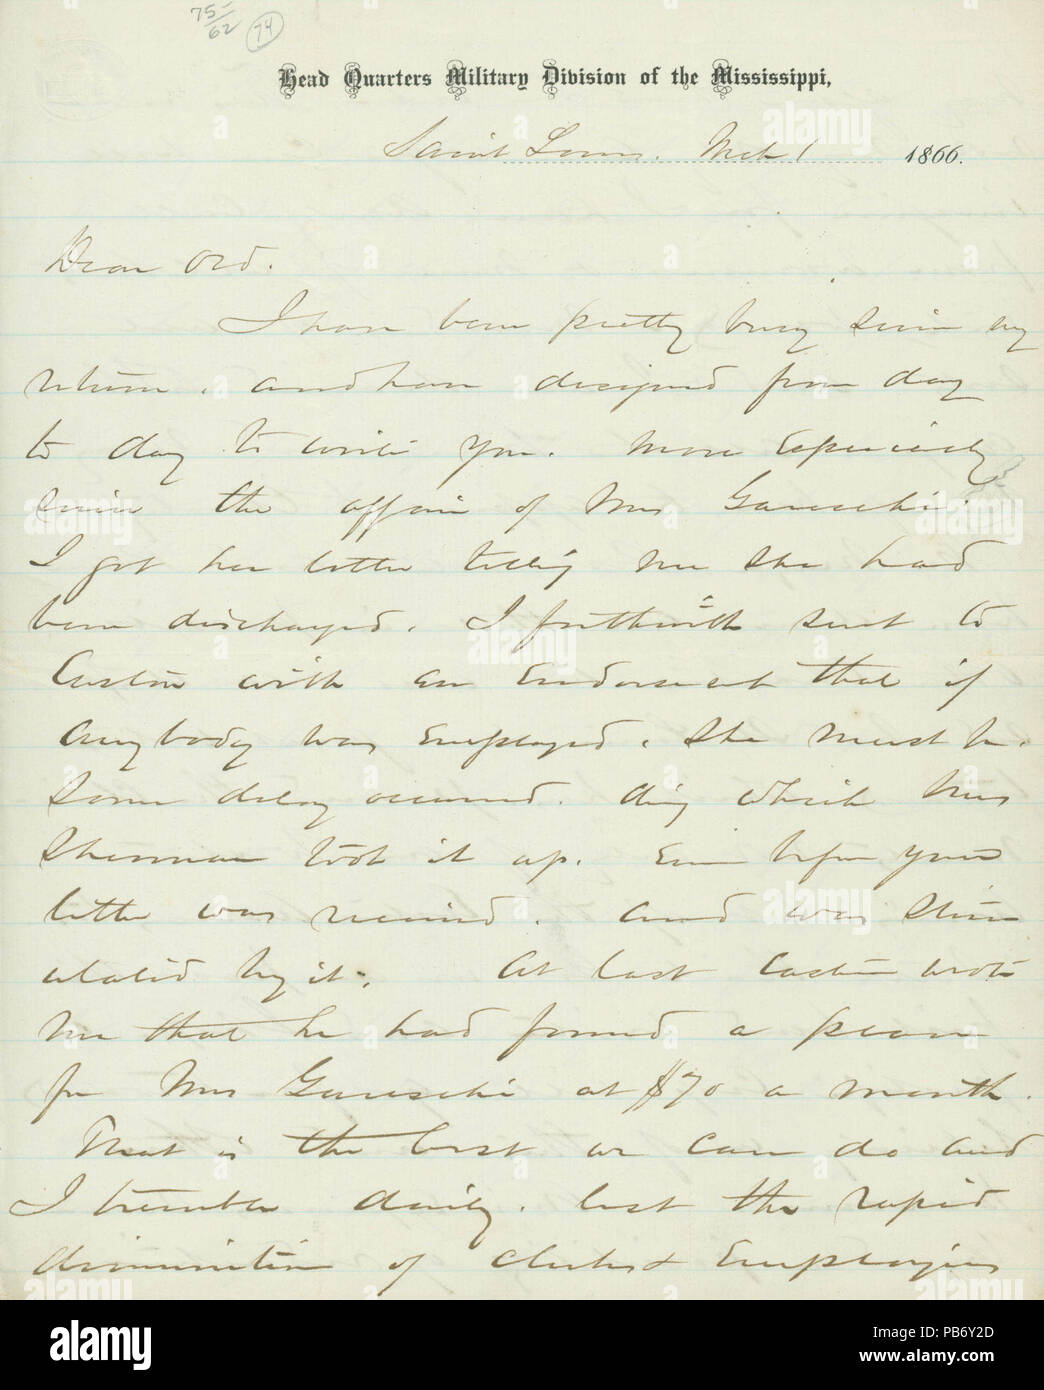 75-
62
74
Head Quarters Military Division of the Mississippi,
Saint Louis, Mch 1 1866.
Dear Ord.
I have been pretty busy since my
return, and have designed from day
to day to write you. More especially
since the affair of Mrs Garesché.
I got her letter telling me she had
been discharged. I forthwith sent to
with an Endorsement that if
anybody was employed, she must be.
Some delay occurred. during which Mrs
Sherman took it up. Even before your
letter was received. and was stim
ulated by it. At last wrote
me that he had found a place
for Mrs Garesché at $70 a month.
That is the best we can do and
I tremble daily, lest the rapid
diminution of clerks & Employees
alamy
Image ID: PB6Y2D
www.alamy.com